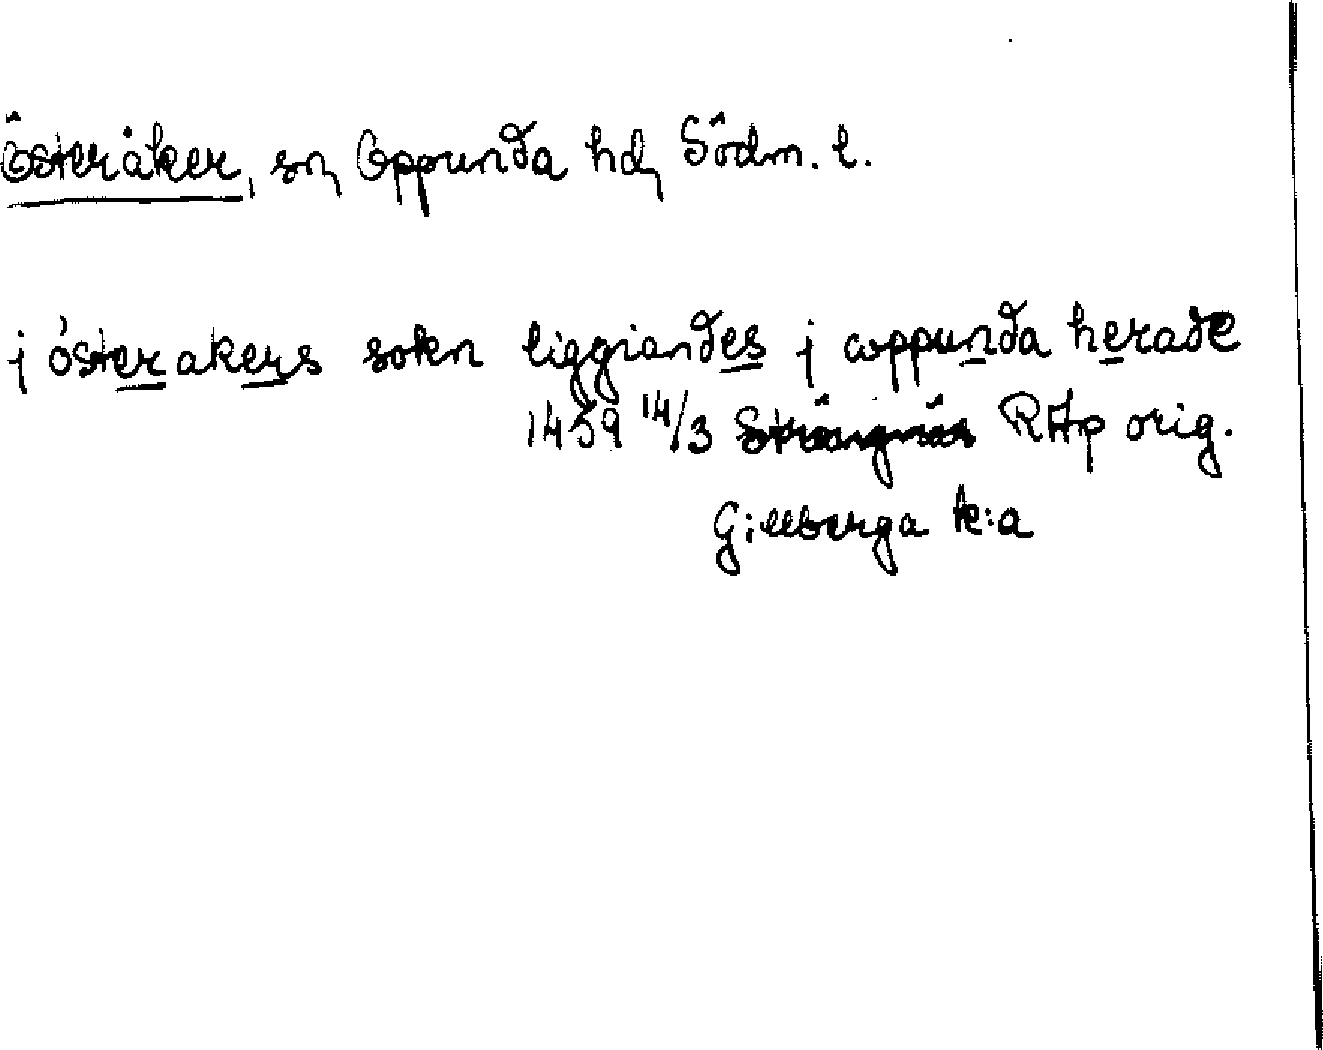 Österåker, sn, Oppunda hd, Södm. l.
j österakers sokn liggiandes j oppunda herade
1459 14/3 Strängnäs RAp orig.
Gillberga k:a